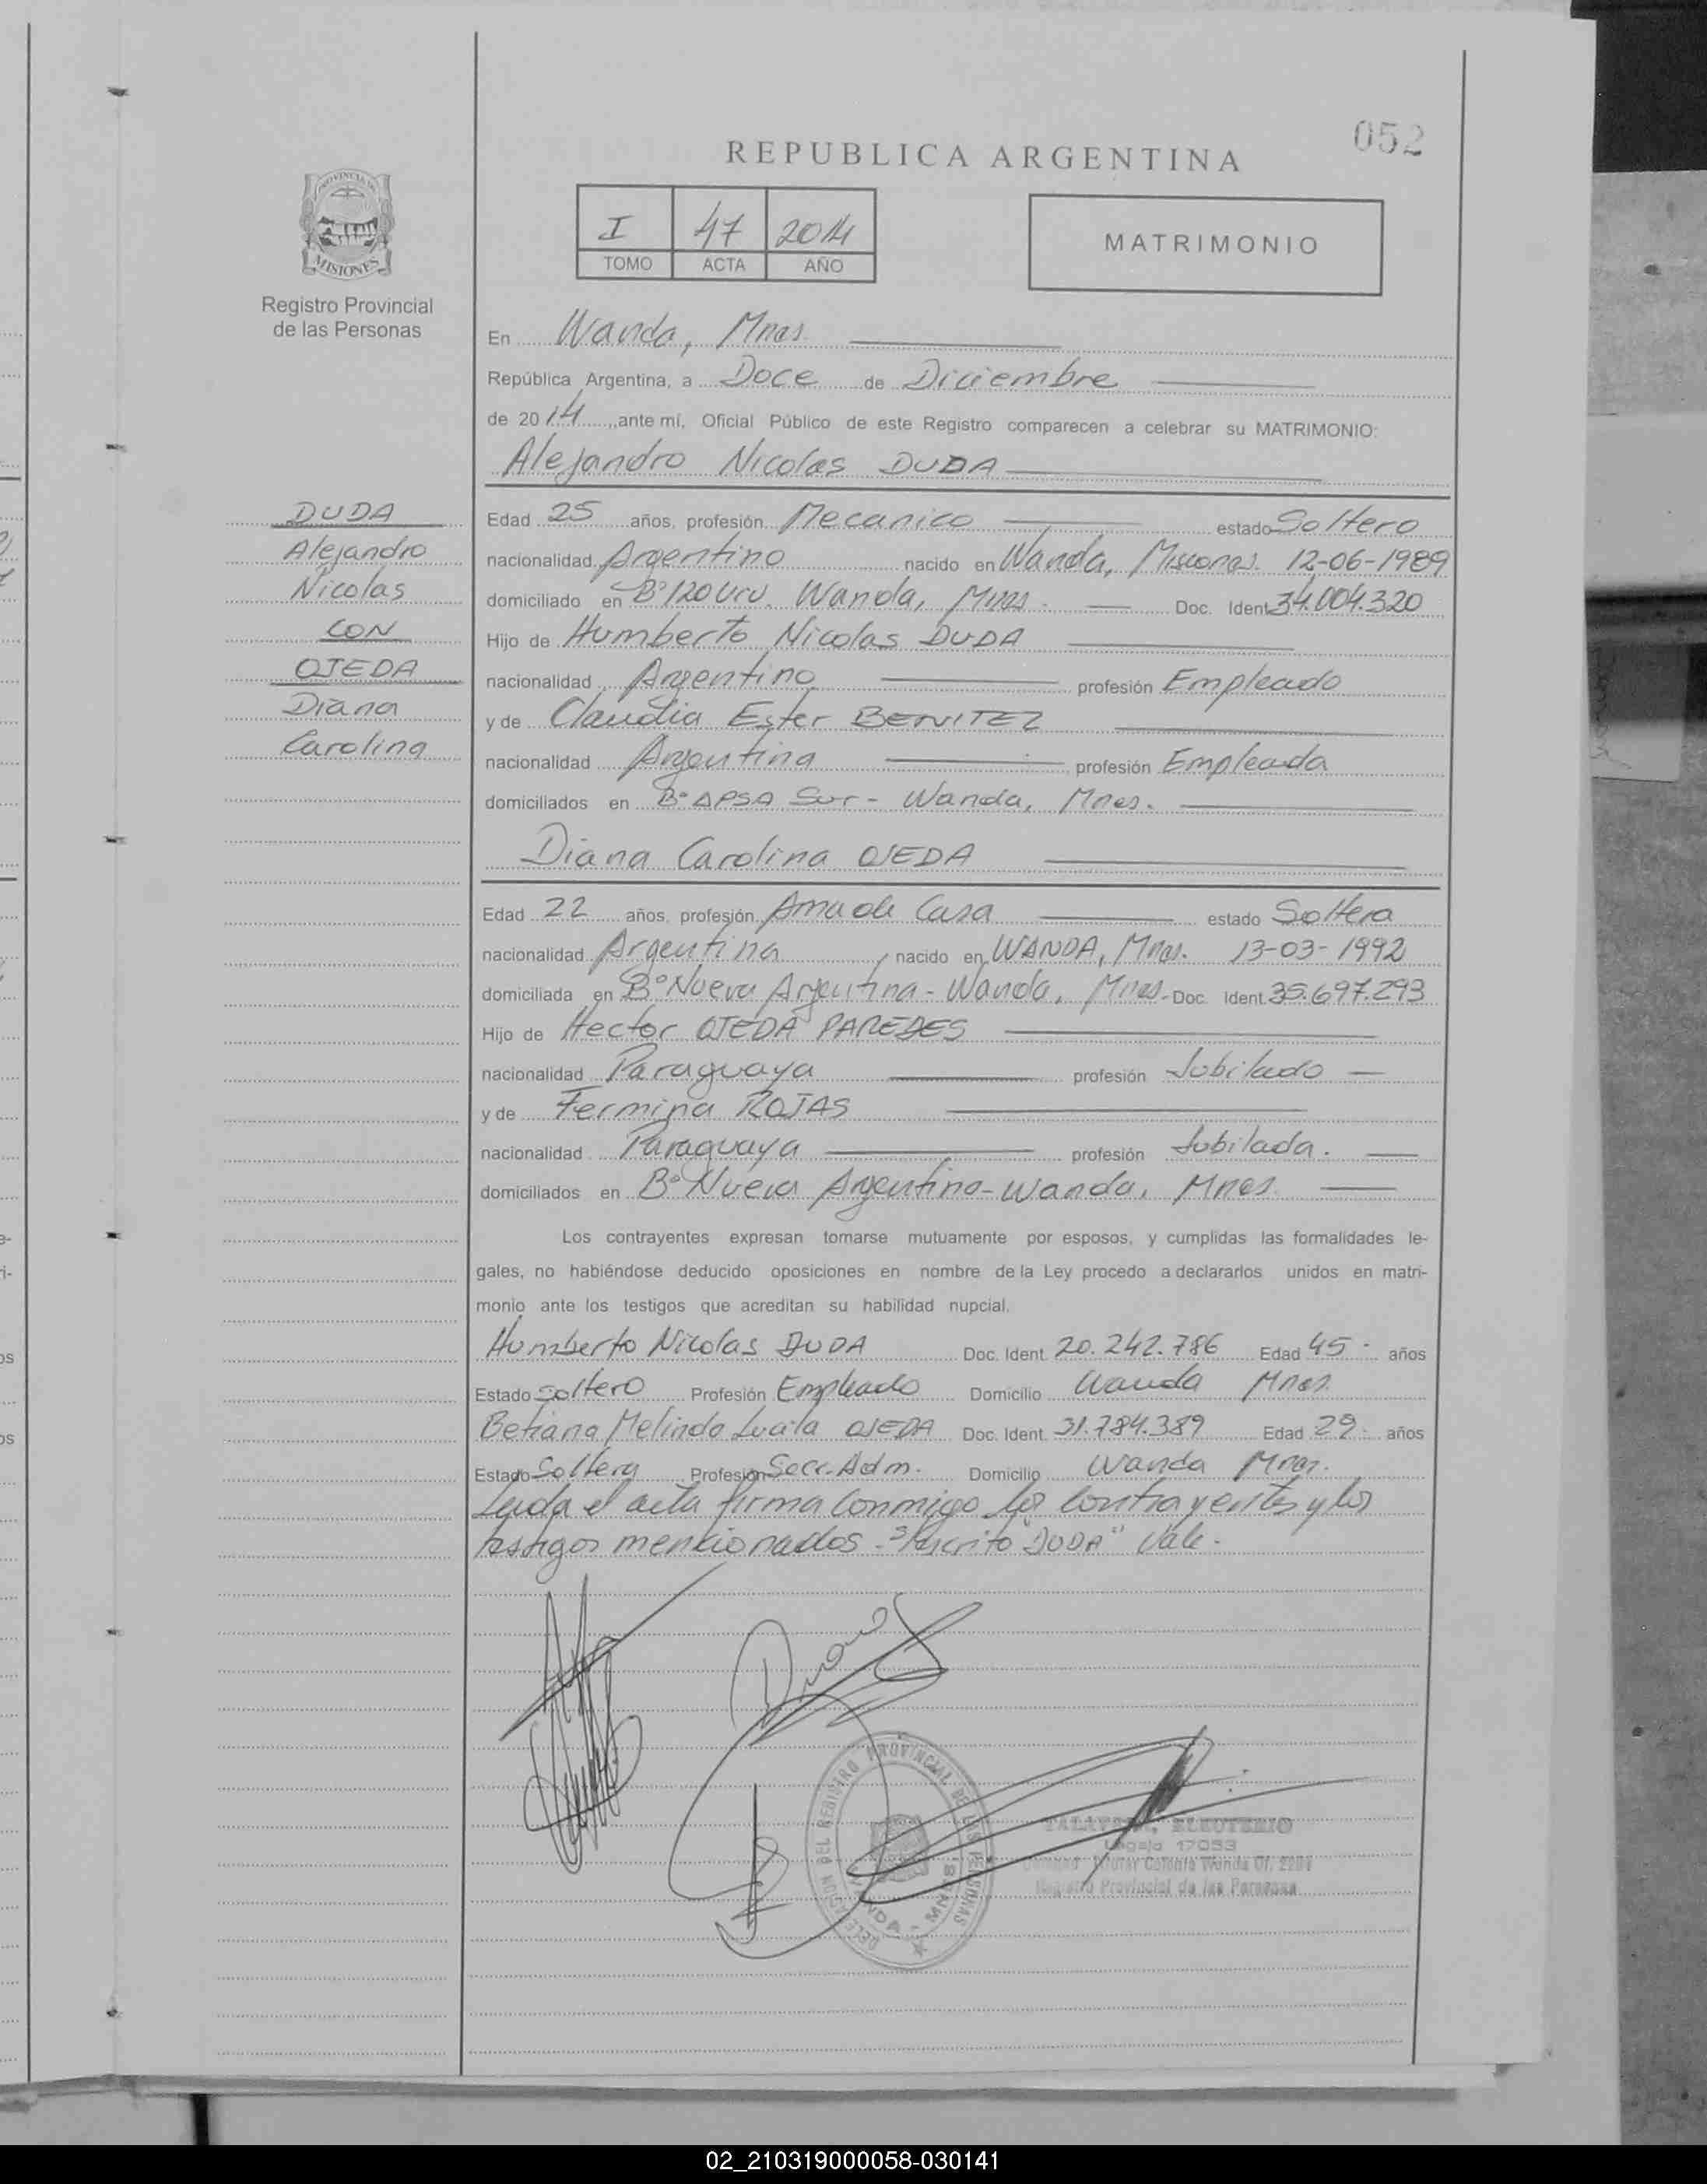 052
REPUBLICA ARGENTINA
I 47 2014
TOMO ACTA AÑO
MATRIMONIO
PROVINCIA DE
MISIONES
Registro Provincial
de las Personas
En Wanda, Mnes.
República Argentina, a Doce de Diciembre
de 2014, ante mí, Oficial Público de este Registro comparecen a celebrar su MATRIMONIO:
Alejandro Nicolas DUDA
DUDA
Alejandro
Nicolas
CON
OJEDA
Diana
Carolina
Edad 25 años, profesión Mecanico estado Soltero
nacionalidad Argentino nacido en Wanda, Misiones. 12-06-1989
domiciliado en B° 120 Viv. Wanda, Mnes. Doc. Ident 34.004.320
Hijo de Humberto Nicolas DUDA
nacionalidad Argentino profesión Empleado
y de Claudia Ester BENITEZ
nacionalidad Argentina profesión Empleada
domiciliados en B° APSA Sur - Wanda, Mnes.
Diana Carolina OJEDA
Edad 22 años, profesión Ama de Casa estado Soltera
nacionalidad Argentina, nacido en WANDA, Mnes. 13-03-1992
domiciliada en B° Nueva Argentina - Wanda, Mnes. Doc. Ident 35.697.293
Hijo de Hector OJEDA PAREDES
nacionalidad Paraguaya profesión Jubilado
y de Fermina ROJAS
nacionalidad Paraguaya profesión Jubilada.
domiciliados en B° Nueva Argentina - Wanda, Mnes.
Los contrayentes expresan tomarse mutuamente por esposos, y cumplidas las formalidades le-
gales, no habiéndose deducido oposiciones en nombre de la Ley procedo a declararlos unidos en matri-
monio ante los testigos que acreditan su habilidad nupcial.
Humberto Nicolas DUDA Doc. Ident. 20.242.786 Edad 45 años
Estado Soltero Profesión Empleado Domicilio Wanda Mnes.
Betiana Melinda Lucila OJEDA Doc. Ident. 31.784.389 Edad 29 años
Estado Soltera Profesión Secr. Adm. Domicilio Wanda Mnes.
Leida el acta firma conmigo los contrayentes y los
testigos mencionados - "DUDA" Vale.
Diana
DELEGACION DEL REGISTRO PROVINCIAL DE LAS PERSONAS
WANDA - MNES
ELEUTERIO
Legajo 17053
Titular Colonia Wanda Of.
Registro Provincial de las Personas
02_210319000058-030141